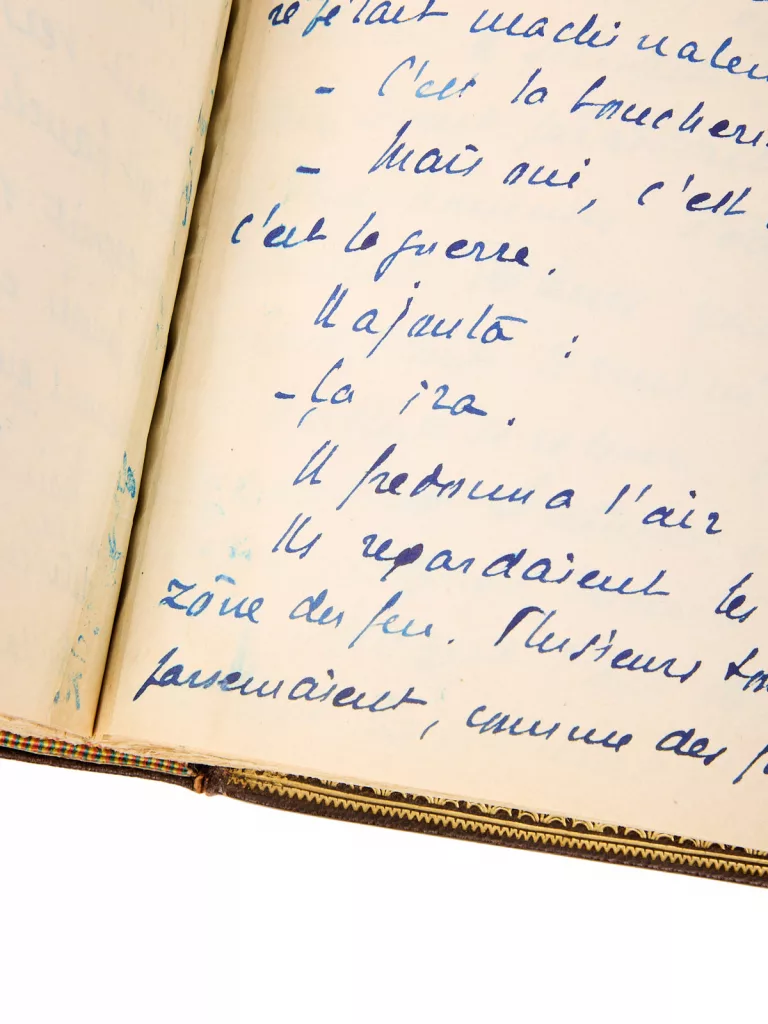 répétait machinalem
- C'est la boucheri
- Mais oui, c'est
c'est la guerre.
Il ajouta :
- Ça ira.
Il fredonna l'air
Ils regardaient les
zône du feu. Plusieurs
parsemaient, comme des